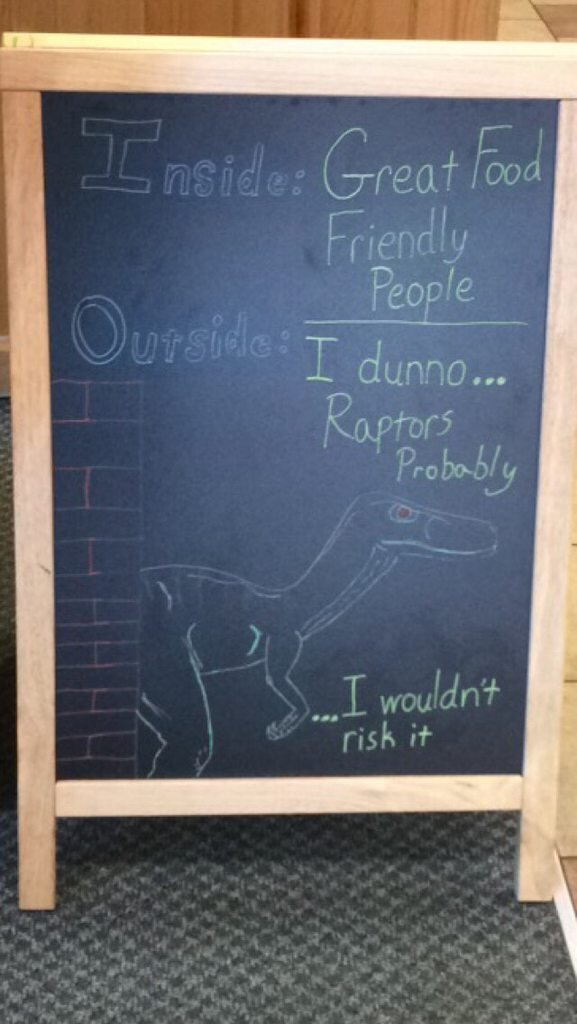 Inside: Great Food
Friendly
People
Outside: I dunno...
Raptors
Probably
...I wouldn't
risk it